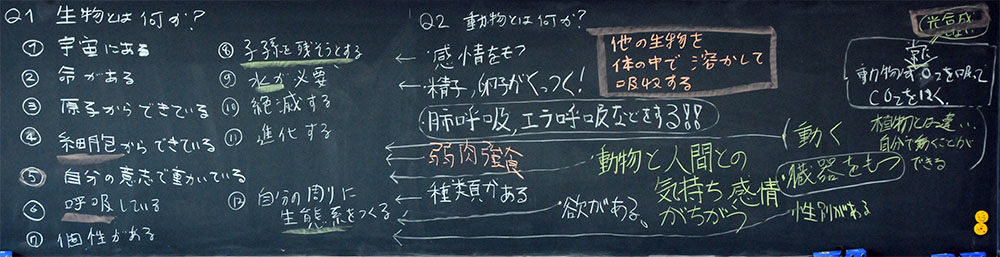 Q1 生物とは何か?
① 宇宙にある
② 命がある
③ 原子からできている
④ 細胞からできている
⑤ 自分の意志で動いている
⑥ 呼吸している
⑦ 個性がある
⑧ 子孫を残そうとする
⑨ 水が必要
⑩ 絶滅する
⑪ 進化する
⑫ 自分の周りに
生態系をつくる
Q2 動物とは何か?
← ・感情をもつ
← ・精子,卵子がくっつく!
肺呼吸,エラ呼吸などをする!!
弱肉強食
種類がある
他の生物を
体の中で溶かして
吸収する
動物と人間との
気持ち感情
がちがう
・欲がある。
・動く
・臓器をもつ
・性別がある
光合成
しない
動物はO2を吸って
CO2をはく。
植物とは違い…
自分で動くことが
できる